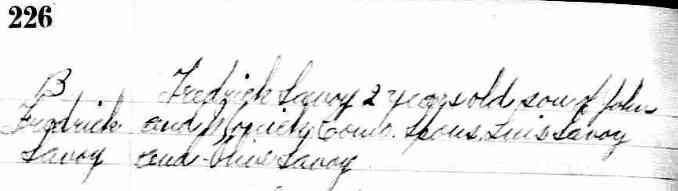 226
B Fredrick Savoy 2 years old, son of John
Fredrick and Society Spous. Luis Savoy
Savoy and Olive Savoy